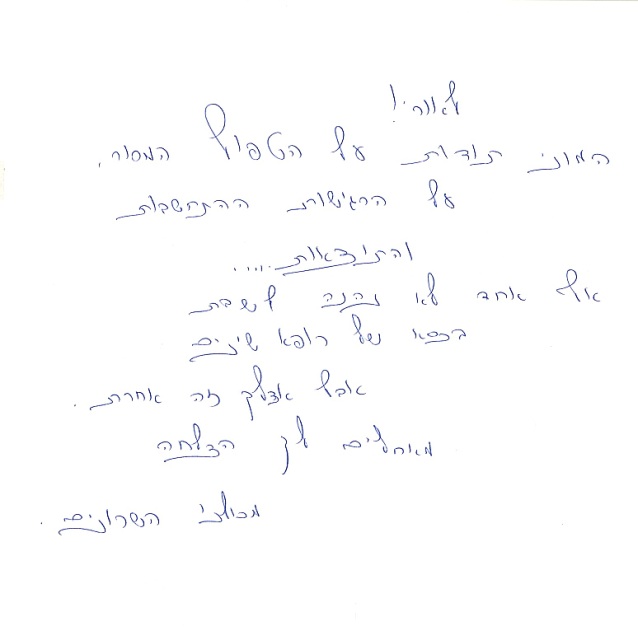 לאור!
המוני תודות על הטפול המסור,
על הרגישות ההתחשבות
והתוצאות.....
אף אחד לא נהנה לשבת
בכסא של רופא שיניים
אבל אצלך זה אחרת.
מאחלים לך הצלחה
מכולנו השרונים.